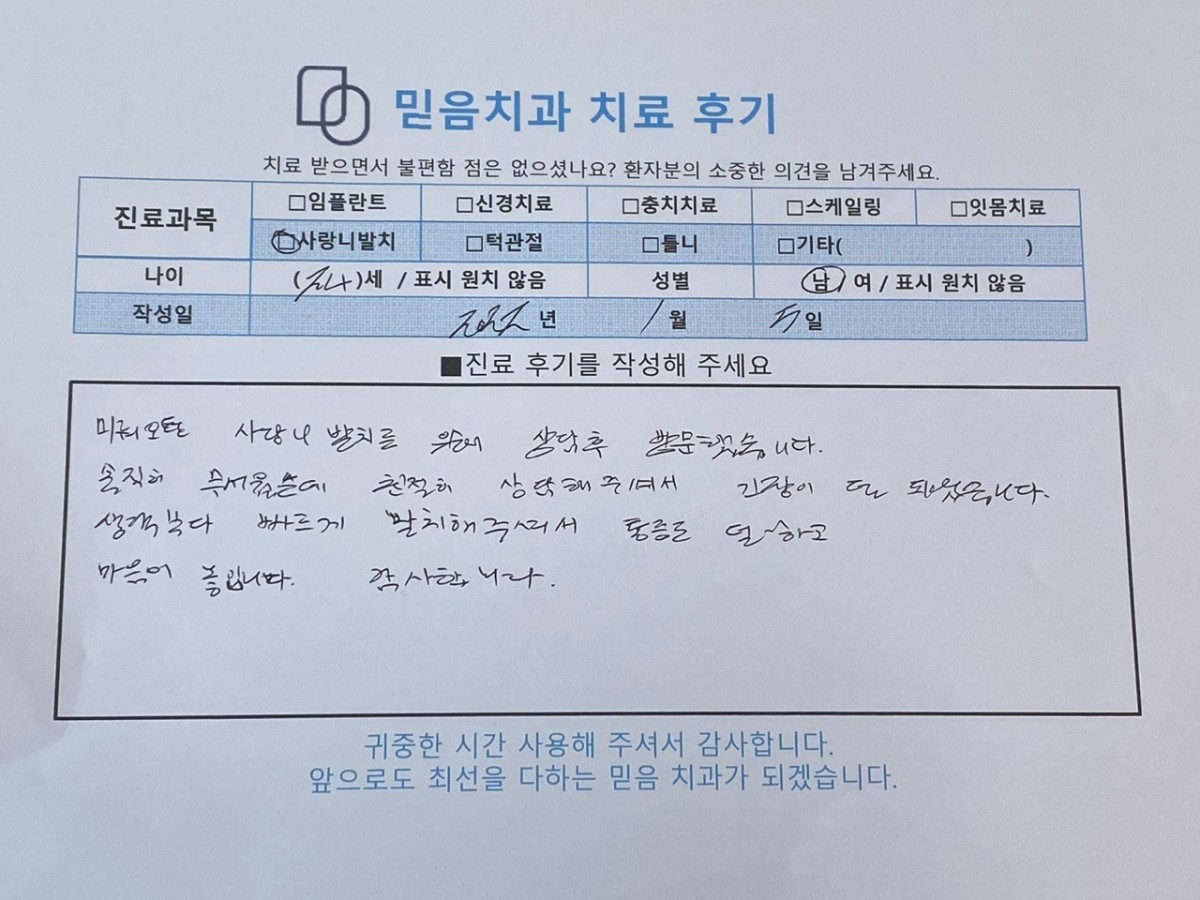 믿음치과 치료 후기
치료 받으면서 불편함 점은 없으셨나요? 환자분의 소중한 의견을 남겨주세요.
진료과목 □임플란트 □신경치료 □충치치료 □스케일링 □잇몸치료
□사랑니발치 □턱관절 □틀니 □기타( )
나이 ( )세 / 표시 원치 않음 성별 남 / 여 / 표시 원치 않음
작성일 2022 년 1 월 5 일
■진료 후기를 작성해 주세요
미뤄오던 사랑니 발치를 위해 상담후 방문했습니다.
솔직히 무서웠는데 친절히 상담해주셔서 긴장이 덜 되었습니다.
생각보다 빠르게 발치해주셔서 통증도 덜~하고
마음이 놓입니다. 감사합니다.
귀중한 시간 사용해 주셔서 감사합니다.
앞으로도 최선을 다하는 믿음 치과가 되겠습니다.